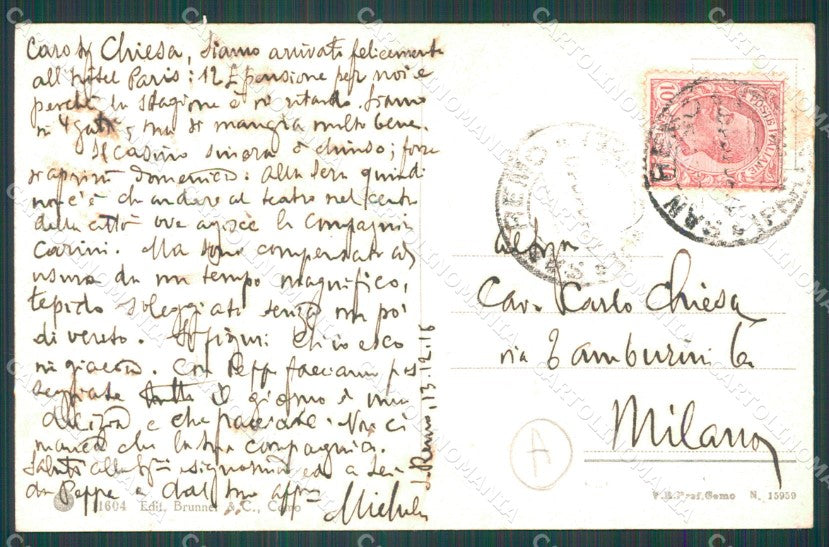 Caro Chiesa, siamo arrivati felicemente
all'Hôtel Paris: 12 £ pensione per noi e
perché la stagione è in ritardo. Siamo
in 4 gatti, ma si mangia molto bene.
Il Casino sinora è chiuso; forse
si aprirà domenica. Alla sera quindi
non c'è che andare al teatro nel centro
della città ove agisce la Compagnia
Carini. Ma sono compensati ad
usura da un tempo magnifico,
tepido soleggiato senza un po'
di vento. Si figuri ch'io esco
in giacca. Con Peppe facciamo pas
seggiate tutto il giorno è una
delizia e che pace. Non ci
manca che la sua compagnia.
Saluti alla signorina ed a Lei
da Peppe e dal suo aff
Michele
S. Remo, 13.12.16
Al Sig
Cav. Carlo Chiesa
via Tamburini 6
Milano
A
SAN REMO
SAN REMO
POSTE ITALIANE
10
1604 Edit. Brunner & C., Como
P. R. Pref. Como N. 15959
CARTOLINOMANIA